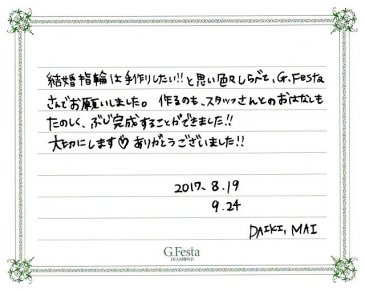 結婚指輪は手作りしたい!!と思い色々しらべて、G.Festa
さんでお願いしました。作るのも、スタッフさんとのおはなしも
たのしく、ぶじ完成することができました!!
大切にします♡ ありがとうございました!!
2017.8.19
9.24
DAIKI, MAI
G.Festa
DIAMOND